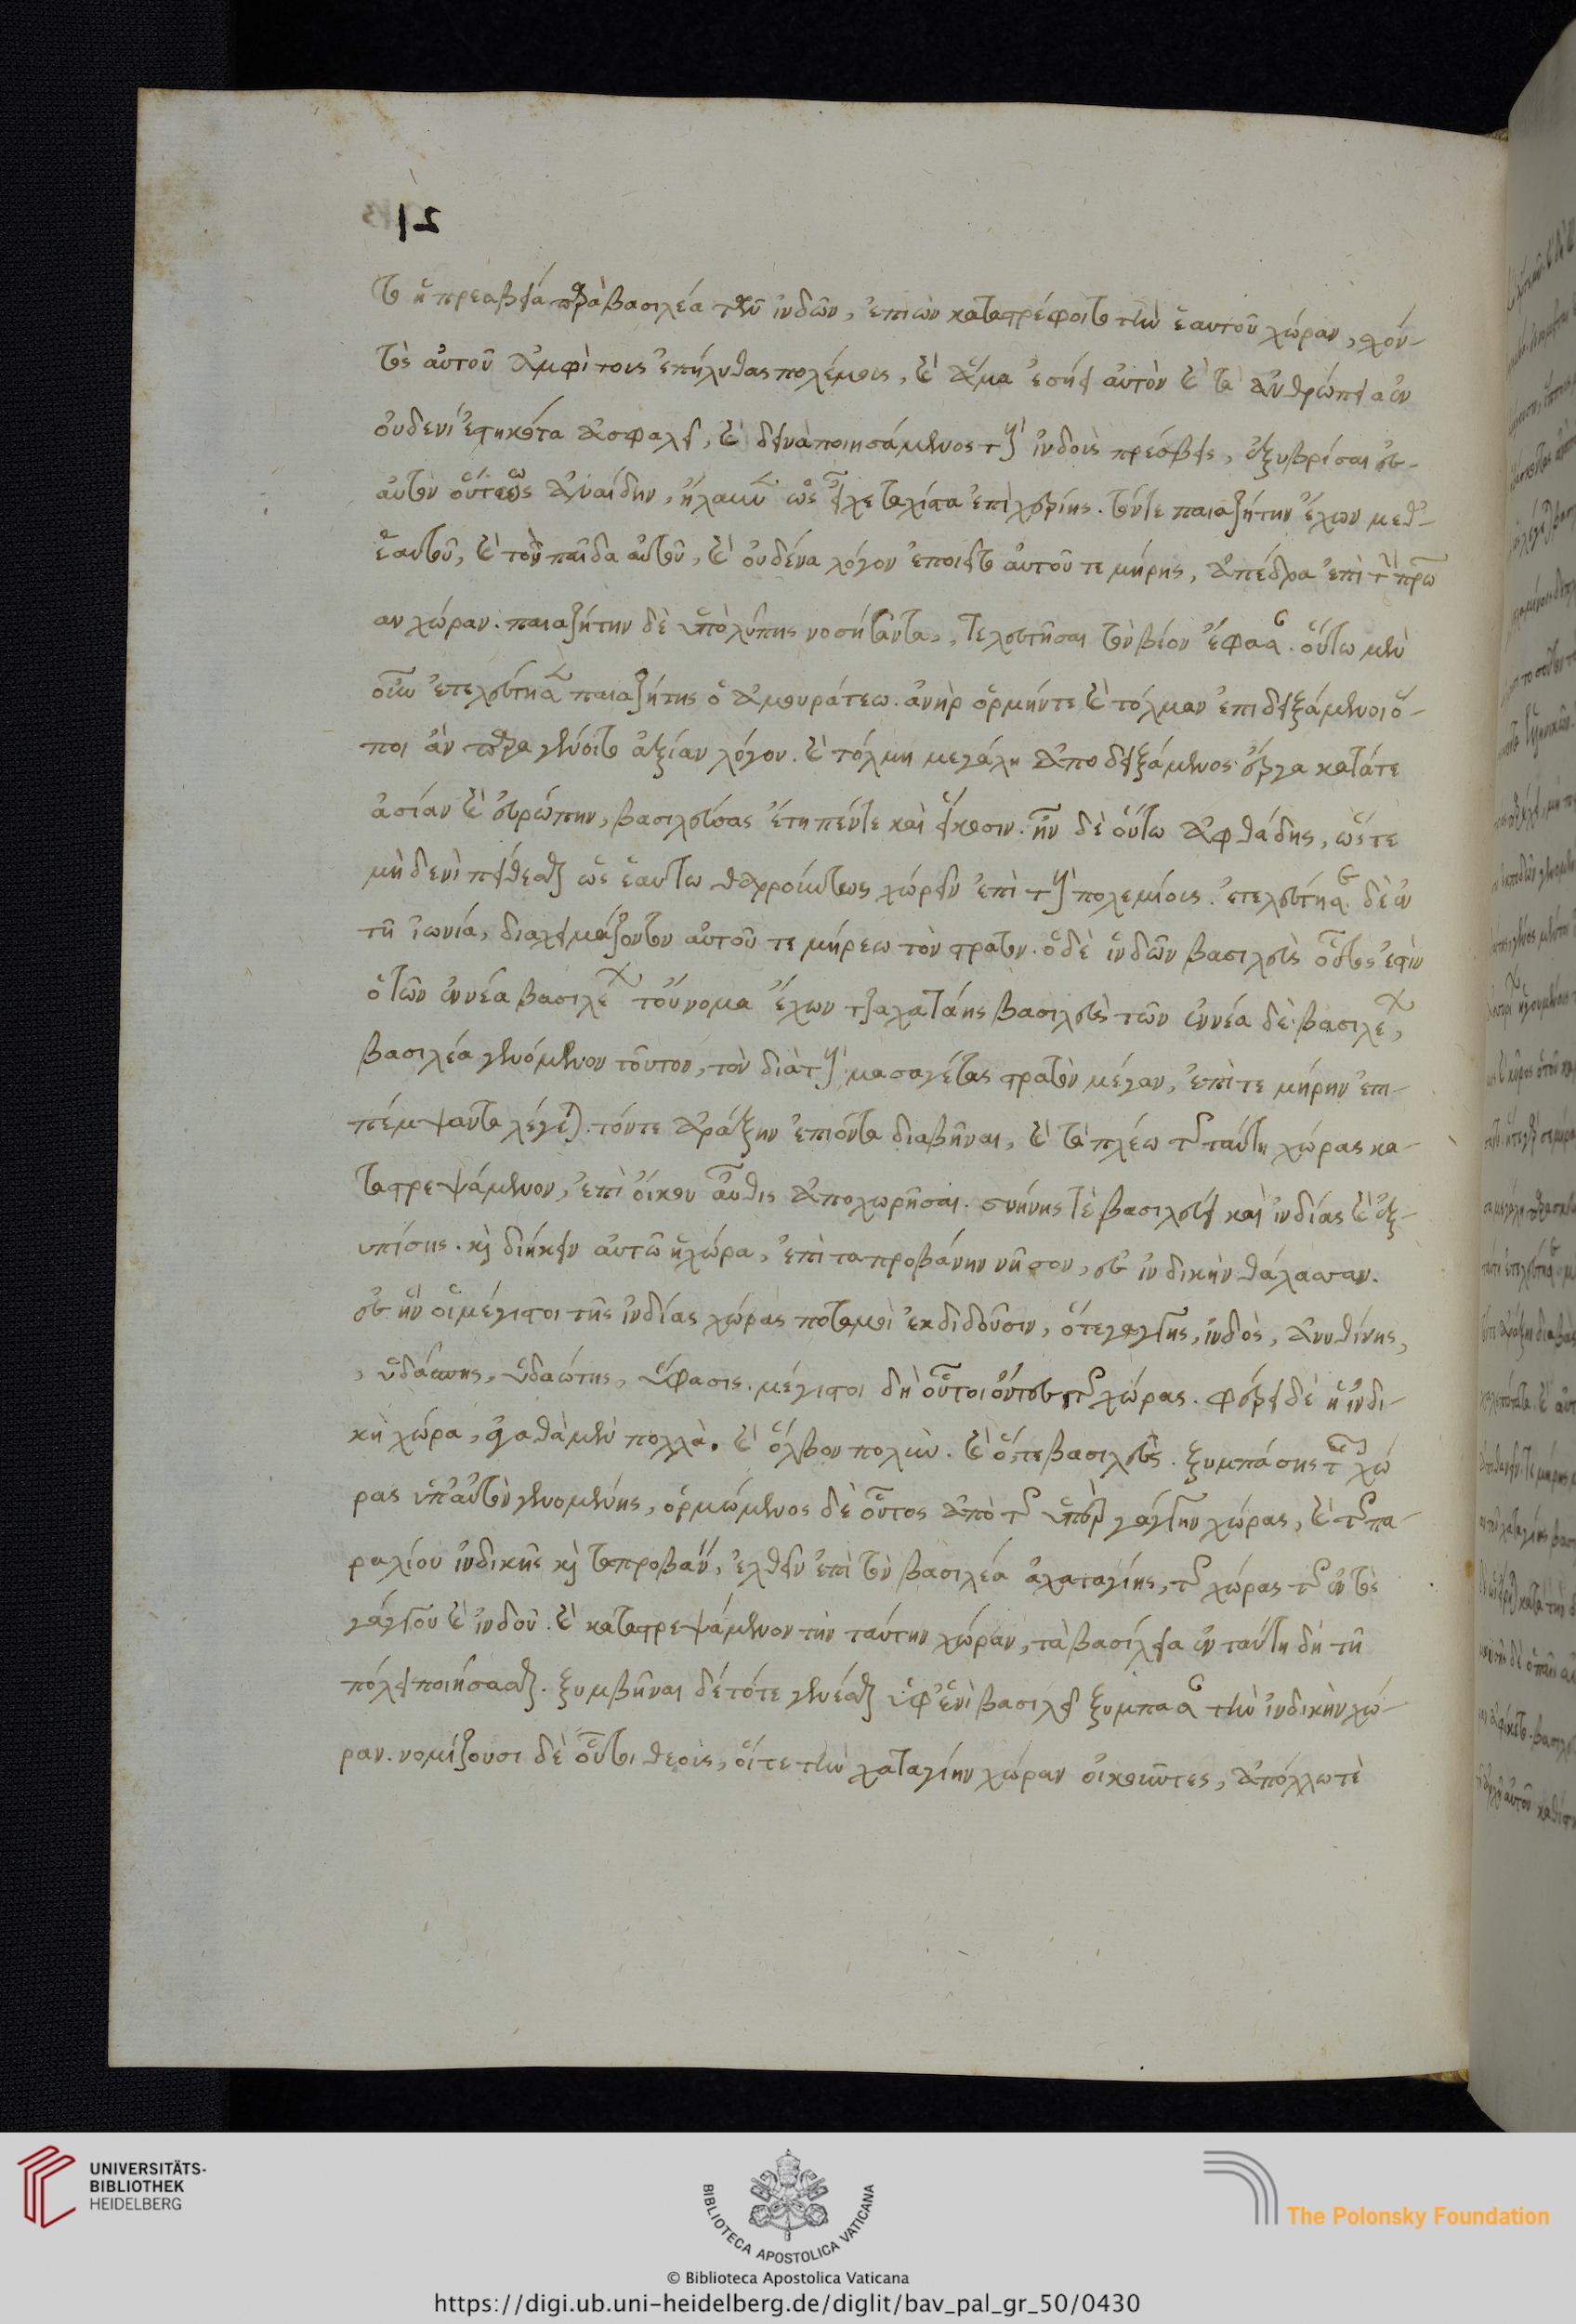 το ἡ πρεσβεία παρὰ βασιλέα τῶν ἰνδῶν, ἐπιὼν καταστρέφοιτο τὴν ἑαυτοῦ χώραν, σχόν-
τος αὐτοῦ ἀμφὶ τοὺς ἐπήλυδας πολέμους, καὶ ἅμα ἐσήει αὐτὸν καὶ τὰ ἀνθρώπεια ἐν
οὐδενὶ ἑστηκότα ἀσφαλεῖ, καὶ δεινὰ ποιησάμενος τοὺς ἰνδοὺς πρέσβεις, ἐξυβρίσαι ἐς
αὐτὸν οὕτως ἀναίδην, ἤλαυνεν ὡς εἶχε τάχιστα ἐπὶ χερίης. τόντε παιαζήτην ἔχων μεθ'
ἑαυτοῦ, καὶ τὸν παῖδα αὐτοῦ, καὶ οὐδένα λόγον ἐποιεῖτο αὐτοῦ τεμήρης, ἀπέδρα ἐπὶ τὴν πρώ
αν χώραν. παιαζήτην δὲ ὑπὸ λύπης νοσήσαντα, τελευτῆσαι τὸν βίον ἔφασαν. οὕτω μὲν
οὖν ἐτελεύτησε παιαζήτης ὁ ἀμουράτεω. ἀνὴρ ὁρμήντε καὶ τόλμαν ἐπιδειξάμενοι ὅ-
ποι ἂν παραγένοιτο ἀξίαν λόγου. καὶ τόλμη μεγάλη ἀποδειξάμενος ἔργα κατάτε
ἀσίαν καὶ εὐρώπην, βασιλεύσας ἔτη πέντε καὶ εἴκοσιν. ἦν δὲ οὕτω αὐθάδης, ὥστε
μηδενὶ πείθεσθαι ὡς ἑαυτῶ θαρρούντως χωρεῖν ἐπὶ τοὺς πολεμίους. ἐτελεύτησε δὲ ἐν
τῆ ἰωνία, διαχειμάζοντος αὐτοῦ τεμήρεω τὸν στρατόν. ὁ δὲ ἰνδῶν βασιλεὺς οὗτος ἐστὶν
ὁ τῶν ἐννέα βασιλέων τοὔνομα ἔχων τζαχατάης βασιλεὺς τῶν ἐννέα δὲ βασιλέων,
βασιλέα γενόμενον τοῦτον, τὸν διὰ τοὺς μασαγέτας στρατὸν μέγαν, ἐπὶ τεμήρην ἐπι-
πέμψαντα λέγεται. τόντε ἀράξην ἐπιόντα διαβῆναι, καὶ τὰ πλέω τῆς ταύτη χώρας κα-
ταστρεψάμενον, ἐπὶ οἴκου αὖθις ἀποχωρῆσαι. σινήνης τὲ βασιλεύει καὶ ἰνδίας καὶ ἐξ-
υπίσης. καὶ διήκειν αὐτῶ ἡ χώρα, ἐπὶ ταπροβάνην νῆσον, ἐς ἰνδικὴν θάλασσαν.
ἐς ἣν οἱ μέγιστοι τῆς ἰνδίας χώρας ποταμοὶ ἐκδιδοῦσιν, ὅτε γάγγης, ἰνδὸς, ἀνυθίνης,
, ὑδάσπης, ὑδραώτης, ὕφασις. μέγιστοι δὴ οὗτοι ὄντες τῆς χώρας. φέρει δὲ ἡ ἰνδι-
κὴ χώρα, ἀγαθὰ μὲν πολλὰ. καὶ ὄλβον πολὺν. καὶ ὅ, τε βασιλεὺς. ξυμπάσης τῆς χώ
ρας ὑπ' αὐτὸν γενομένης, ὁρμώμενος δὲ οὗτος ἀπὸ τῆς ὑπὲρ γάγγην χώρας, καὶ τῆς πα-
ραλίου ἰνδικῆς καὶ ταπροβάνης, ἐλθεῖν ἐπὶ τὸν βασιλέα χαταγίης, τῆς χώρας τῆς ἐντὸς
γάγγου καὶ ἰνδοῦ. καὶ καταστρεψάμενον τὴν ταύτην χώραν, τὰ βασίλεια ἐν ταύτη δὴ τῆ
πόλει ποιήσασθαι. ξυμβῆναι δὲ τότε γενέσθαι ὑφ' ἑνὶ βασιλεῖ ξύμπασαν τὴν ἰνδικὴν χώ-
ραν. νομίζουσι δὲ οὗτοι θεοὺς, οἵτε τὴν χαταγίην χώραν οἰκοῦντες, ἀπόλλω τὲ
UNIVERSITÄTS-
BIBLIOTHEK
HEIDELBERG
BIBLIOTECA APOSTOLICA VATICANA
The Polonsky Foundation
© Biblioteca Apostolica Vaticana
https://digi.ub.uni-heidelberg.de/diglit/bav_pal_gr_50/0430